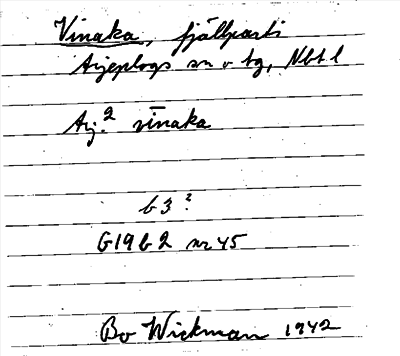 Vinaka, fjällparti
Arjeplogs sn o tg, Nbt l
Arj.² vīnaka
b 3 ?
G19 b 2 nr 45
Bo Wickman 1942